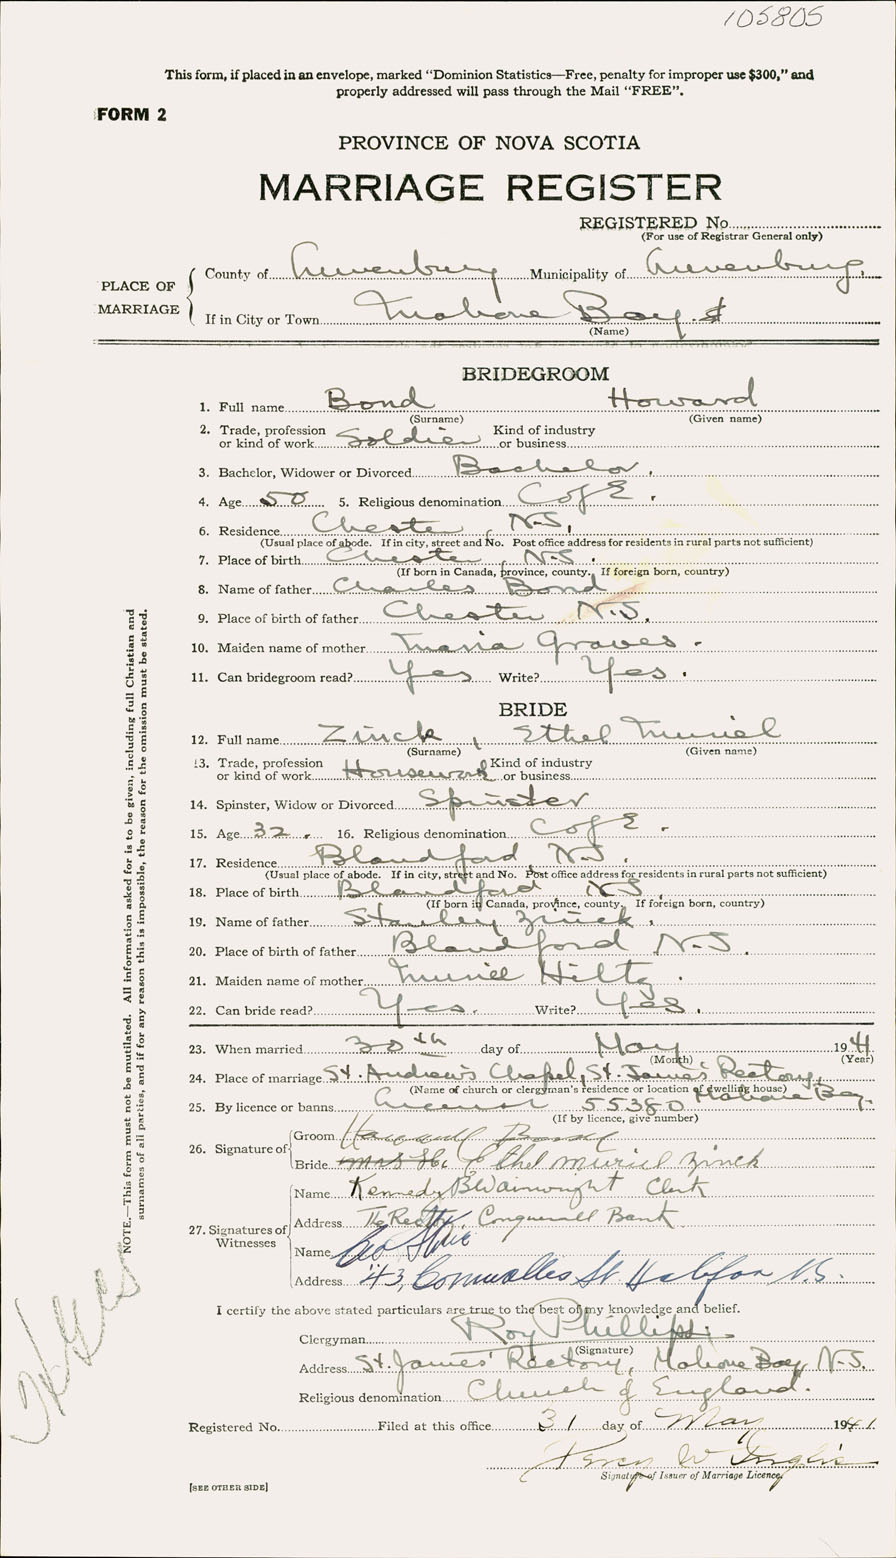 105805
This form, if placed in an envelope, marked "Dominion Statistics—Free, penalty for improper use $300," and
properly addressed will pass through the Mail "FREE".
FORM 2
PROVINCE OF NOVA SCOTIA
MARRIAGE REGISTER
REGISTERED No.
(For use of Registrar General only)
PLACE OF MARRIAGE
County of Lunenburg Municipality of Lunenburg.
If in City or Town Mahone Bay.
(Name)
BRIDEGROOM
1. Full name Bond Howard
(Surname) (Given name)
2. Trade, profession or kind of work Soldier Kind of industry or business
3. Bachelor, Widower or Divorced Bachelor.
4. Age 50 5. Religious denomination C of E.
6. Residence Chester, N.S.
(Usual place of abode. If in city, street and No. Post office address for residents in rural parts not sufficient)
7. Place of birth Chester, N.S.
(If born in Canada, province, county. If foreign born, country)
8. Name of father Charles Bond
9. Place of birth of father Chester N.S.
10. Maiden name of mother Maria Graves.
11. Can bridegroom read? Yes Write? Yes.
BRIDE
12. Full name Zinck, Ethel Muriel
(Surname) (Given name)
13. Trade, profession or kind of work Housework Kind of industry or business
14. Spinster, Widow or Divorced Spinster
15. Age 32. 16. Religious denomination C of E.
17. Residence Blandford, N.S.
(Usual place of abode. If in city, street and No. Post office address for residents in rural parts not sufficient)
18. Place of birth Blandford N.S.
(If born in Canada, province, county. If foreign born, country)
19. Name of father Stanley Zinck.
20. Place of birth of father Blandford N.S.
21. Maiden name of mother Muriel Hiltz.
22. Can bride read? Yes. Write? Yes.
23. When married 30th day of May 1941
(Month) (Year)
24. Place of marriage St. Andrew's Chapel, St. James' Rectory,
(Name of church or clergyman's residence or location of dwelling house)
Mahone Bay.
25. By licence or banns License 55380
(If by licence, give number)
26. Signature of
Groom Howard Bond
Bride Ethel Muriel Zinck
27. Signatures of Witnesses
Name Kennedy B Wainwright Clerk
Address The Rectory, Conquerall Bank
Name
Address 43, Cornwallis St Halifax N.S.
I certify the above stated particulars are true to the best of my knowledge and belief.
Clergyman Roy Phillips
(Signature)
Address St. James' Rectory, Mahone Bay, N.S.
Religious denomination Church of England.
Registered No. Filed at this office 31 day of May 1941
Percy W Inglis
Signature of Issuer of Marriage Licence
[SEE OTHER SIDE]
NOTE.—This form must not be mutilated. All information asked for is to be given, including full Christian and
surnames of all parties, and if for any reason this is impossible, the reason for the omission must be stated.